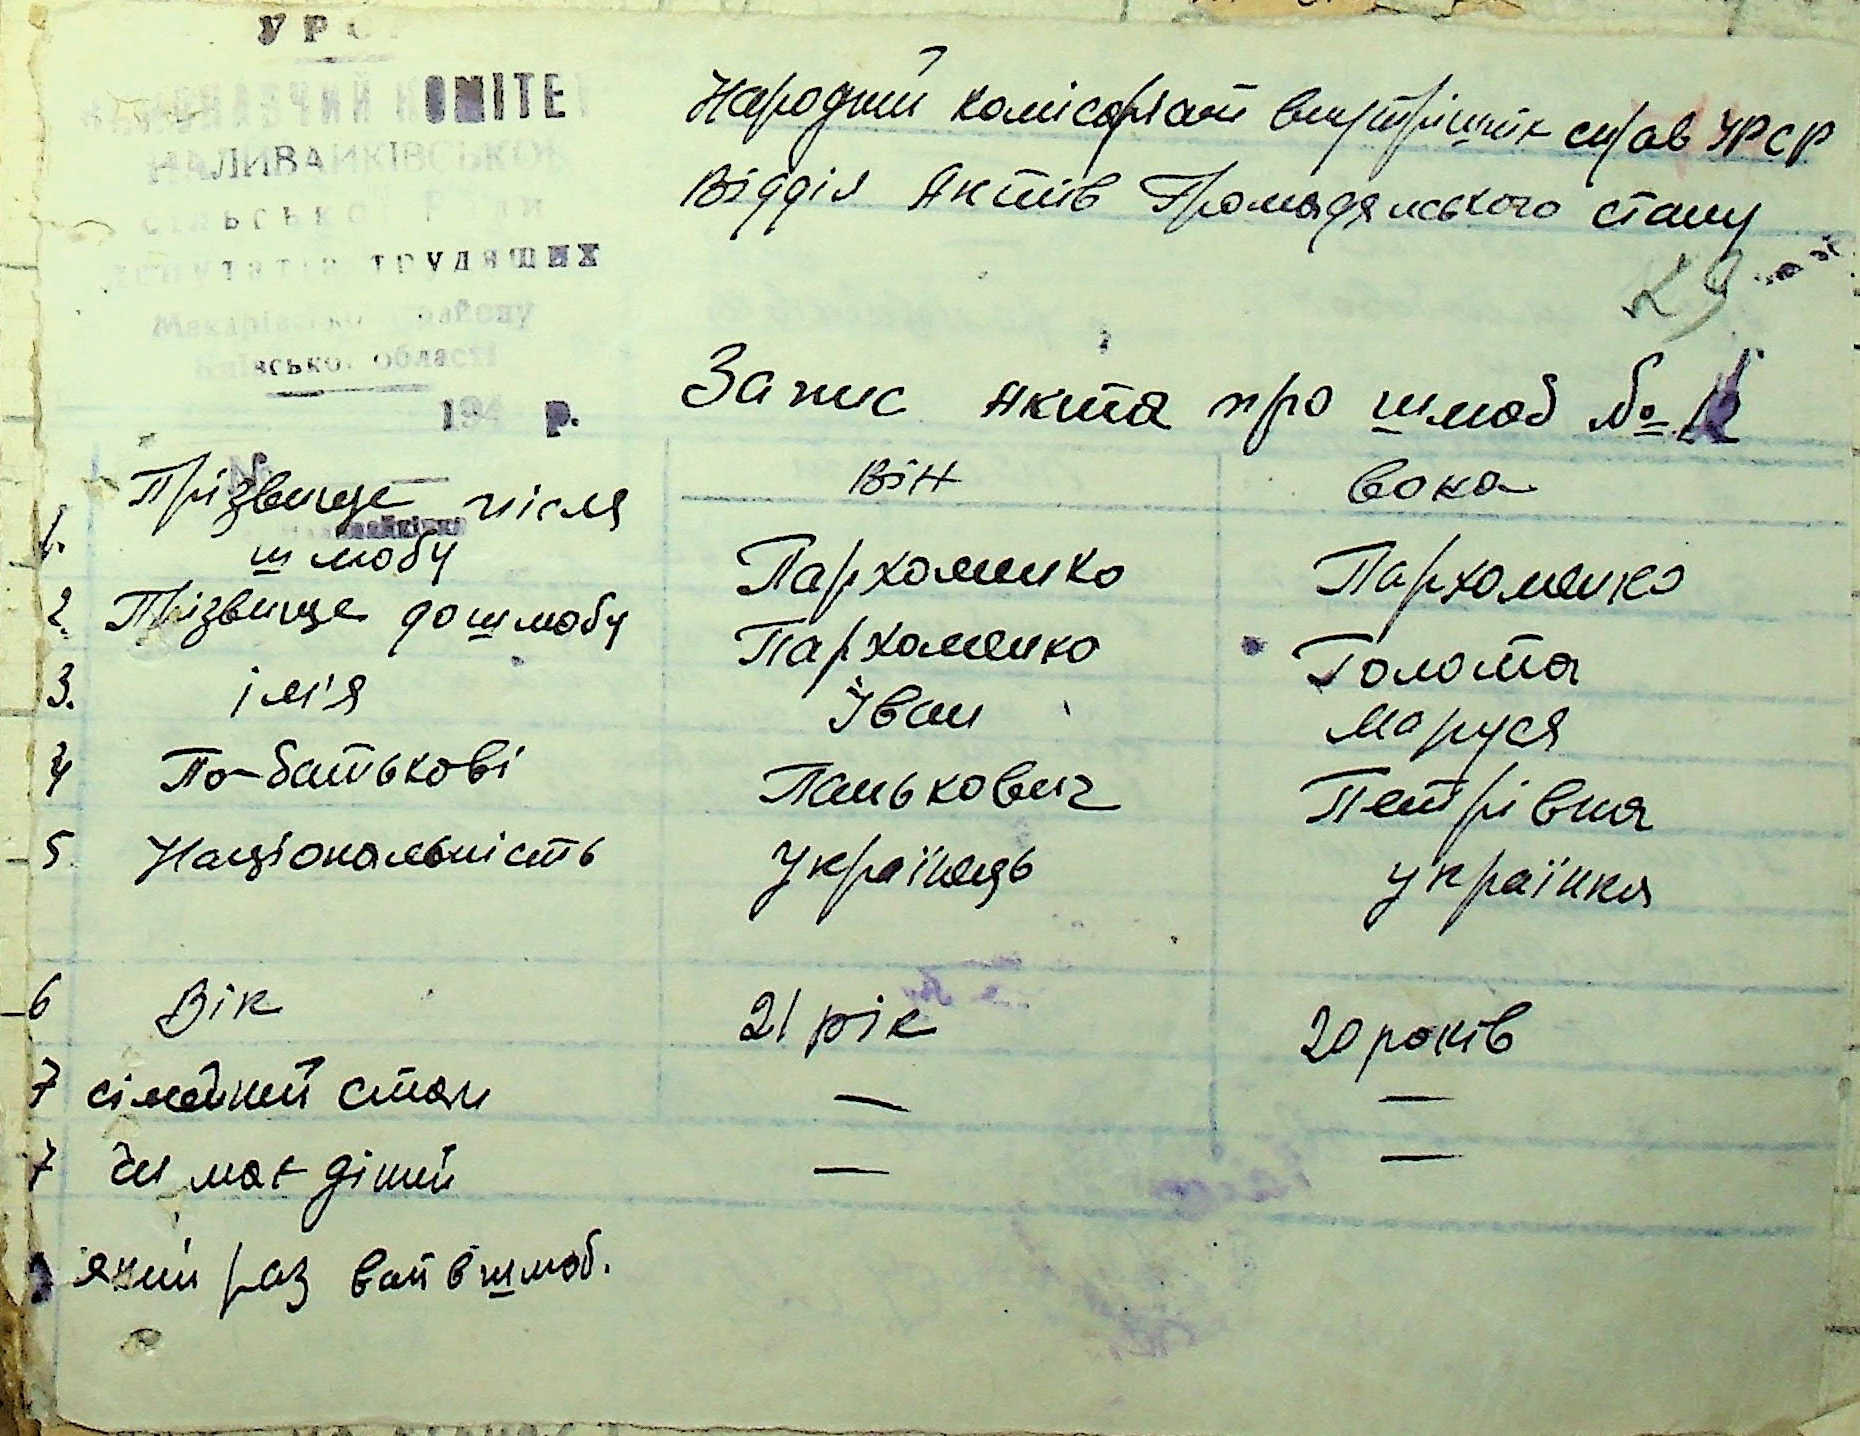 УРСР
ВИКОНАВЧИЙ КОМІТЕТ
НАЛИВАЙКІВСЬКОЇ
сільської Ради
депутатів трудящих
Макарівського району
Київської області
194 р.
Народний комісаріат внутрішніх справ УРСР
Відділ Актів Громадянського стану
Запис Акта про шлюб №
він вона
1. Прізвище після
шлюбу Пархоменко Пархоменко
2. Прізвище до шлюбу Пархоменко Голота
3. ім'я Іван Маруся
4 По-батькові Панькович Петрівна
5. Національність українець українка
6 Вік 21 рік 20 років
7 сімейний стан — —
7 чи має дітей — —
який раз в шлюб.